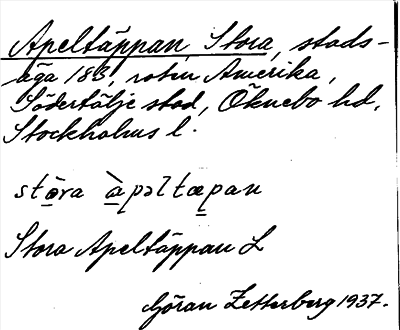 Apeltäppan, Stora, stads-
äga 183, roten Amerika,
Södertälje stad, Öknebo hd,
Stockholms l.
stɷ̀ra àpəltæpan
Stora Apeltäppan L
Göran Zetterberg 1937.